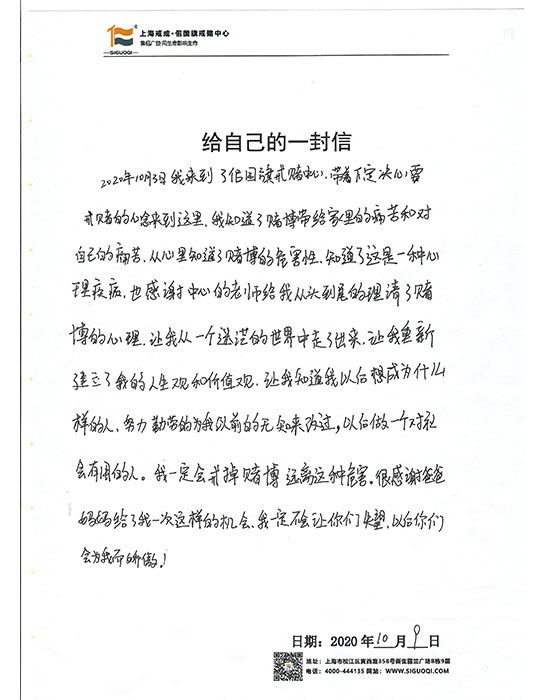 上海戒成·佀国旗戒赌中心
SIGUOQI
给自己的一封信
2020年10月3日我来到了佀国旗戒赌中心,带着下定决心要
戒赌的心念来到这里,我知道了赌博带给家里的痛苦和对
自己的痛苦,从心里知道了赌博的危害性,知道了这是一种心
理疾病,也感谢中心的老师给我从头到尾的理清了赌
博的心理,让我从一个迷茫的世界中走了出来,让我重新
建立了我的人生观和价值观,让我知道我以后想成为什么
样的人、努力勤劳的为我以前的无知来改过,以后做一个对社
会有用的人。我一定会戒掉赌博 远离这种危害。很感谢爸爸
妈妈给了我一次这样的机会、我一定不会让你们失望,以后你们
会为我而骄傲!
日期:2020 年 10 月 9 日
地址:上海市松江区黄西路358号新生丽兰广场8栋9层
电话:4000-444135 网址:WWW.SIGUOQI.COM